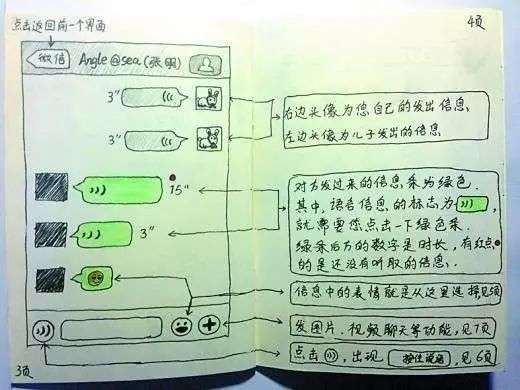 点击返回前一个界面
4页
微信
Angle@sea(张明)
3"
3"
15"
3"
右边头像为您自己的发出信息,
左边头像为儿子发出的信息
对方发过来的信息条为绿色.
其中,语音信息的标志为
就需要您点击一下绿色条.
绿条后方的数字是时长,有红点
的是还没有听取的信息.
信息中的表情能是从这里选择见5页
发图片、视频聊天等功能,见7页
点击 ,出现 按住说话 ,见6页
3页